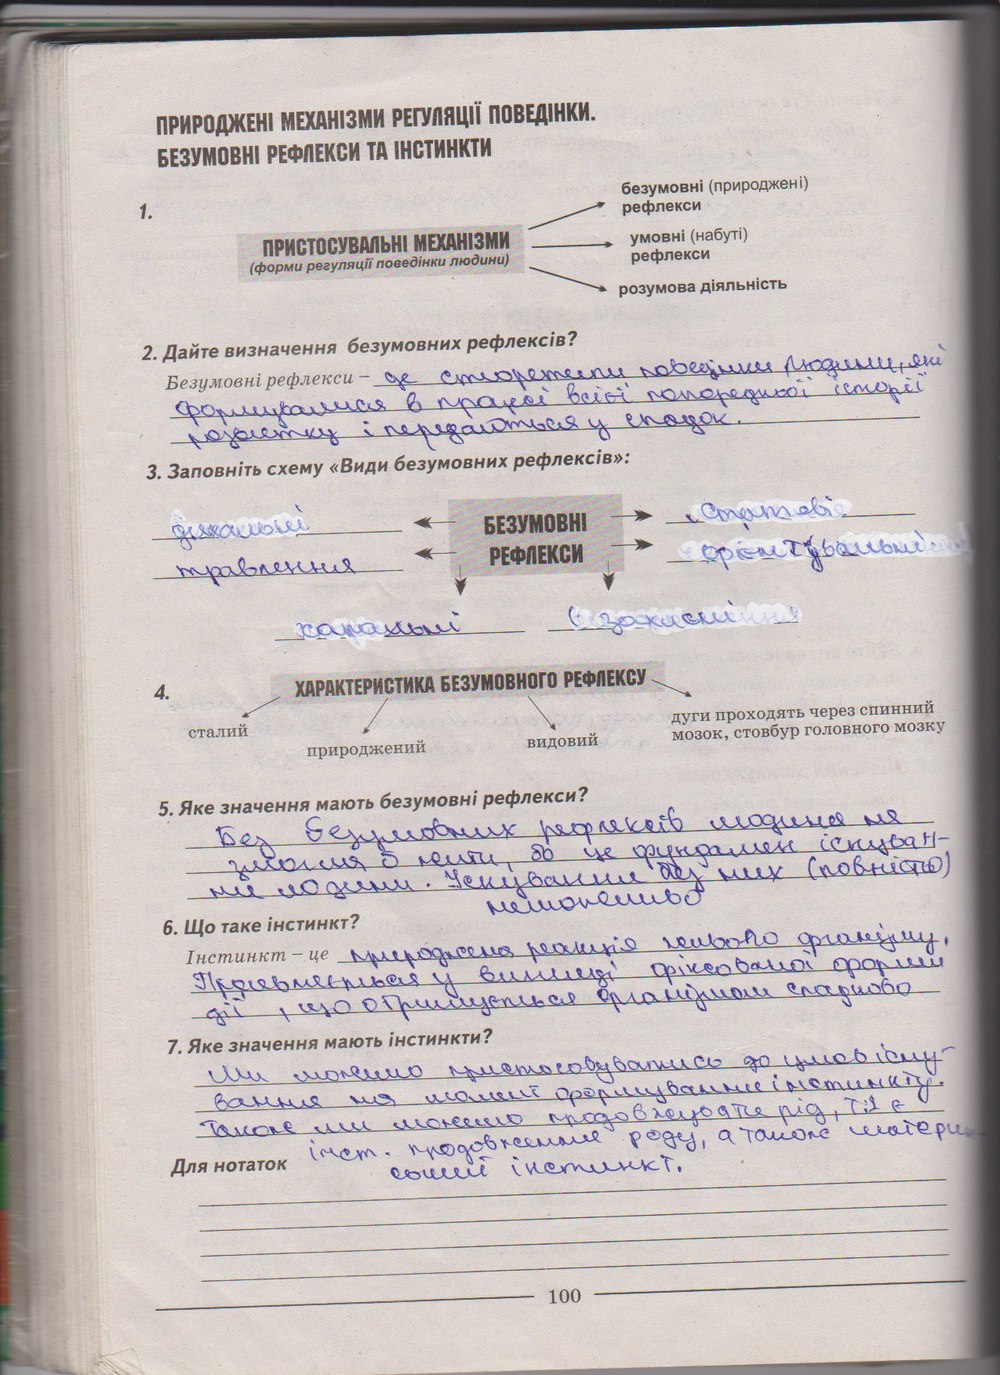 ПРИРОДЖЕНІ МЕХАНІЗМИ РЕГУЛЯЦІЇ ПОВЕДІНКИ.
БЕЗУМОВНІ РЕФЛЕКСИ ТА ІНСТИНКТИ
1.
ПРИСТОСУВАЛЬНІ МЕХАНІЗМИ
(форми регуляції поведінки людини)
безумовні (природжені)
рефлекси
умовні (набуті)
рефлекси
розумова діяльність
2. Дайте визначення безумовних рефлексів?
Безумовні рефлекси – це стореотипи поведінки людини, які
формувалися в працесі всієї попоредньої історії
розвитку і передаються у спадок.
3. Заповніть схему «Види безумовних рефлексів»:
БЕЗУМОВНІ
РЕФЛЕКСИ
дихальні
статеві
травлення
орієнтувальний
харчаньні
захисні
4.
ХАРАКТЕРИСТИКА БЕЗУМОВНОГО РЕФЛЕКСУ
сталий
природжений
видовий
дуги проходять через спинний
мозок, стовбур головного мозку
5. Яке значення мають безумовні рефлекси?
Без безумовних рефлексів людина не
змогла б жити, бо це фундамен існуван-
ня людини. Існування без них (повністю)
неможливо
6. Що таке інстинкт?
Інстинкт – це природжена реакція живого організму.
Проявляється у вигляді фіксованої форми
дії, що отримується організмом спадково
7. Яке значення мають інстинкти?
Ми можемо пристосовуватись до умов існу-
вання на момент формування інстинкту.
Також ми можемо продовжувати рід, т.я є
інст. продовження роду, а також материн-
ський інстинкт.
Для нотаток
100